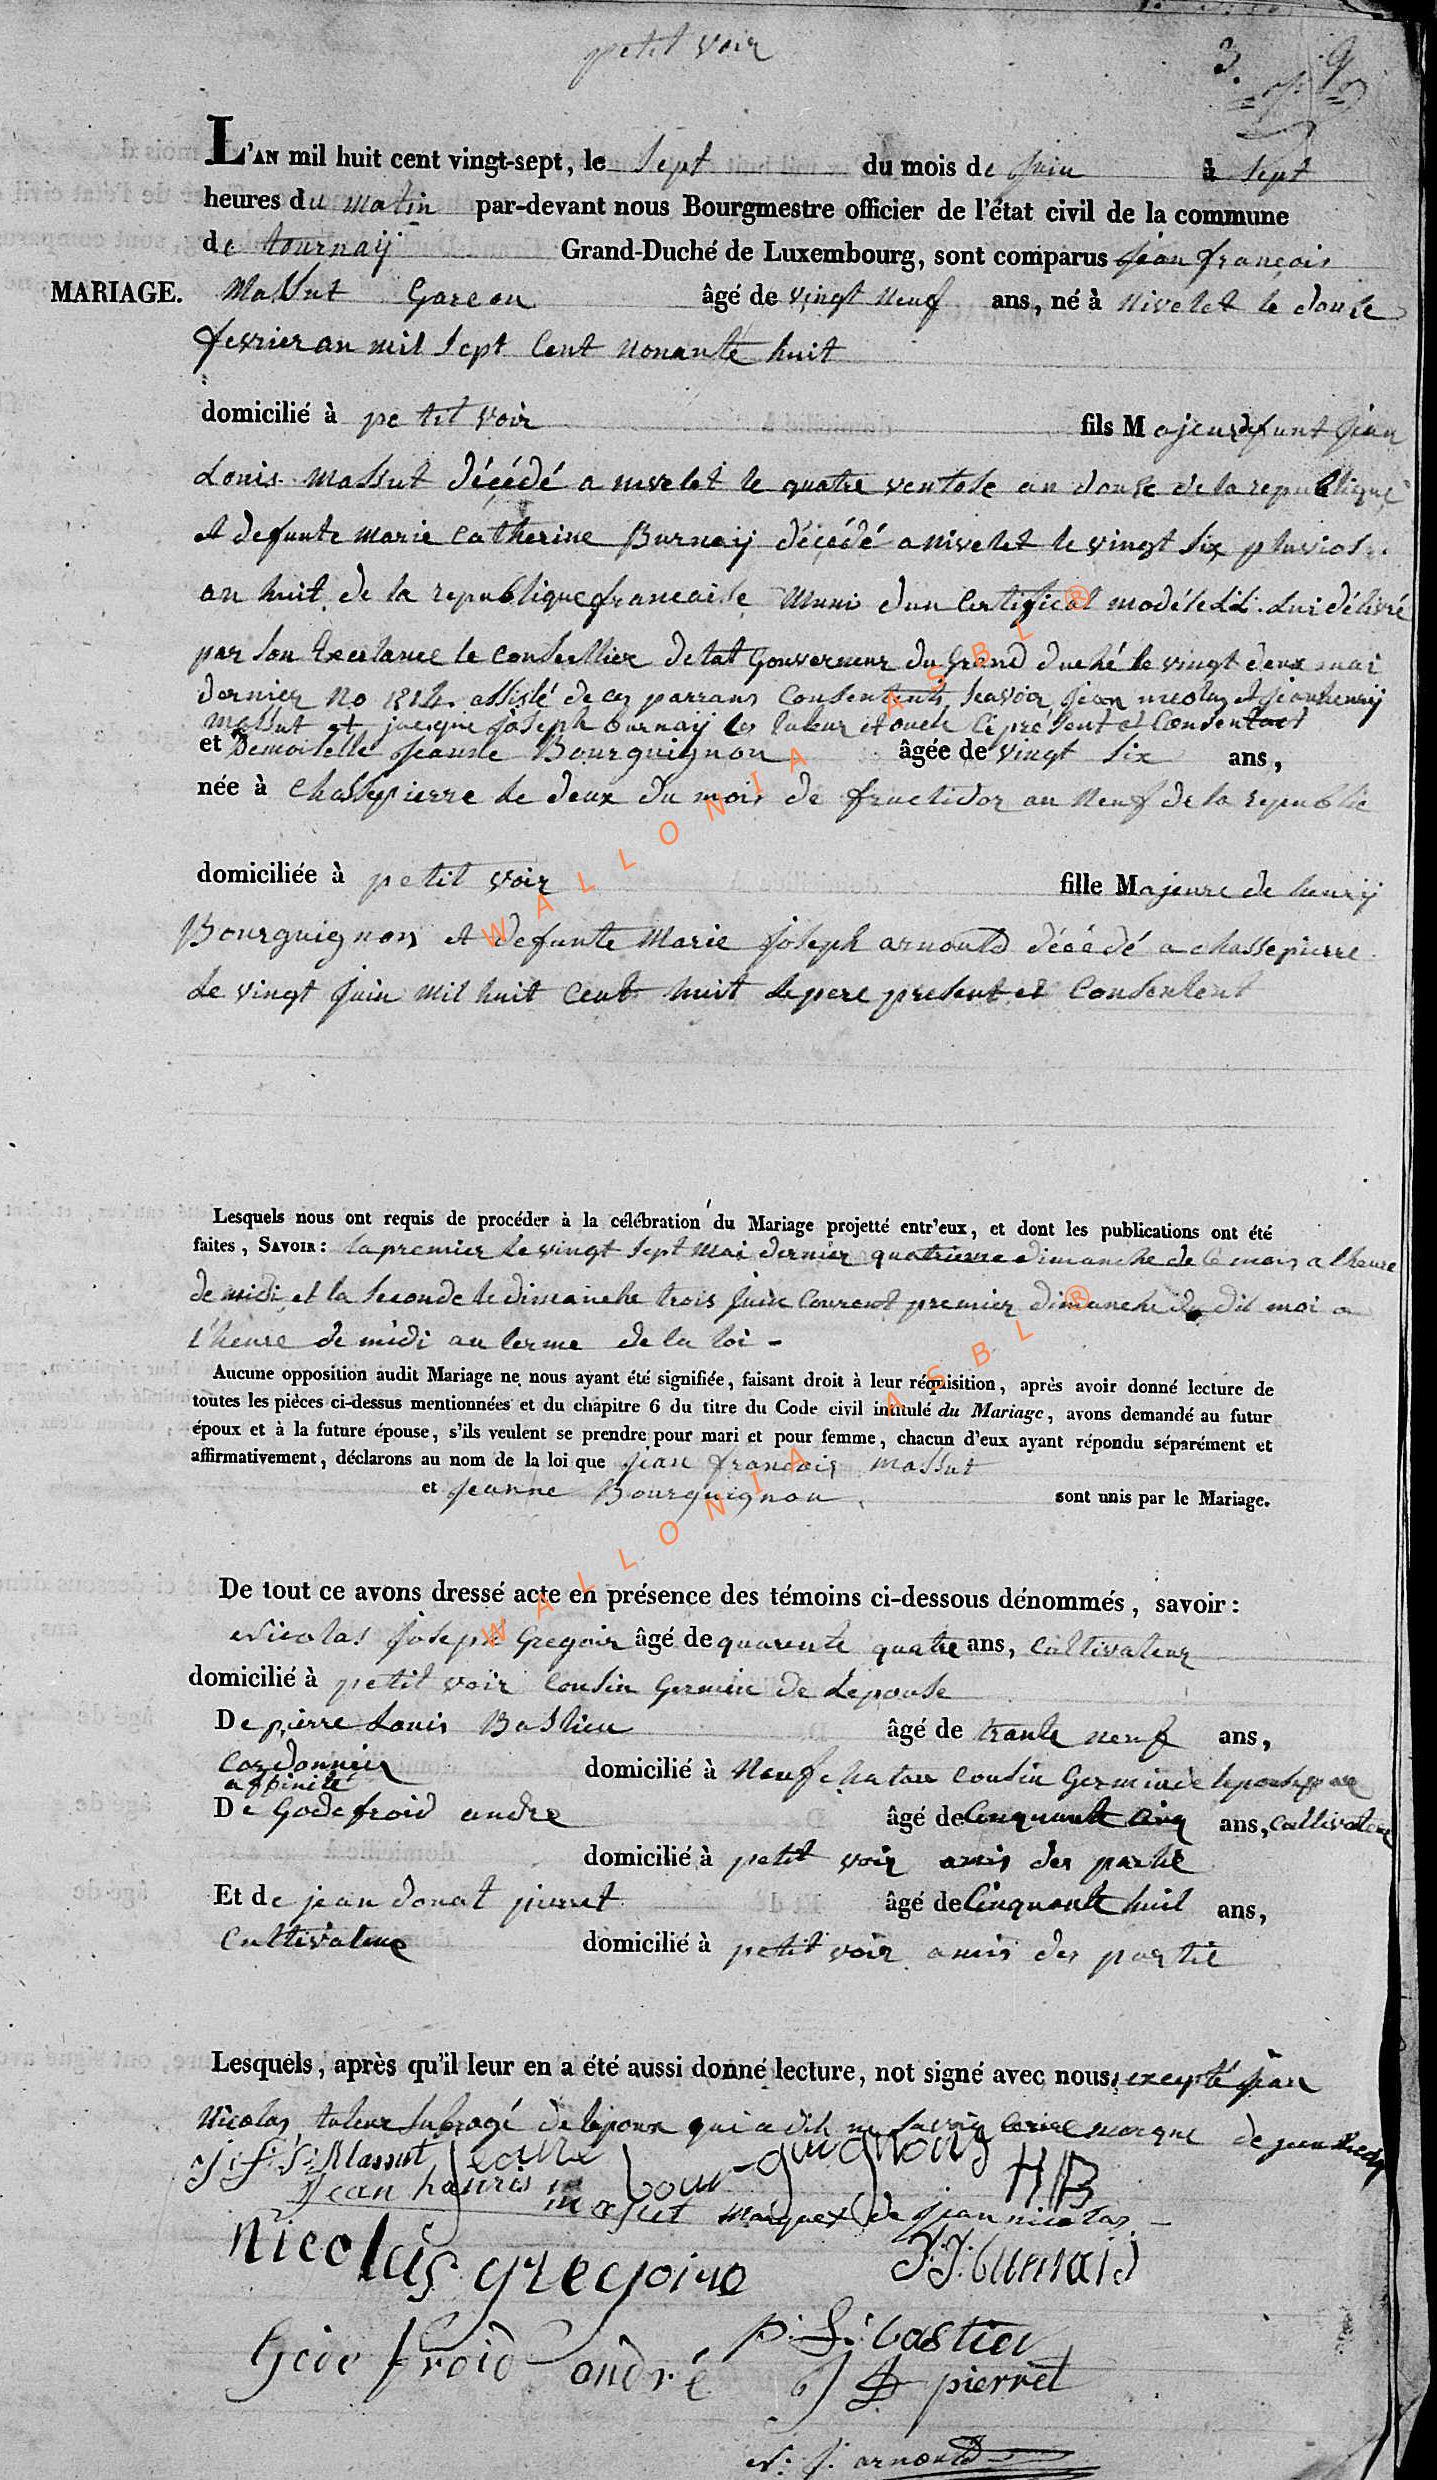 petit voir
3. 9
L'AN mil huit cent vingt-sept, le sept du mois de juin à sept
heures du matin par-devant nous Bourgmestre officier de l'état civil de la commune
de tournaij Grand-Duché de Luxembourg, sont comparus jean françois
MARIAGE. Massut Garcon âgé de vingt neuf ans, né à nivelet le douse
fevrier an mil sept cent nonante huit
domicilié à petit voir fils Majeur defunt jean
Louis Massut décédé a nivelet le quatre ventose an douse de la republique
et defunte marie catherine Burnaij décédé a nivelet le vingt six pluvios
an huit de la republique francaise muni dun certificat modéle LL. lui délivré
par son Excelance le conseillier detat Gouverneur du Grand duché le vingt deux mai
dernier no 1214. assisté de ces parrans consentents scavoir jean nicolas et jean henrij
massut et jacque joseph burnaij les tuteur et oncle ci présent et consentant
et Demoiselle jeanne Bourguignon âgée de vingt six ans,
née à chassepierre le deux du mois de fructidor an neuf de la republic
domiciliée à petit voir fille Majeure de henrij
Bourguignon et defunte Marie joseph arnould décédé a chassepierre
le vingt juin mil huit cent huit le pere present et consentent
Lesquels nous ont requis de procéder à la célébration du Mariage projetté entr'eux, et dont les publications ont été
faites, SAVOIR: la premier le vingt sept mai dernier quatrieme dimanche de ce mois a lheure
de midi et la seconde le dimanche trois juin courent premier dimanche du dit moi a
l'heure de midi au terme de la loi -
Aucune opposition audit Mariage ne nous ayant été signifiée, faisant droit à leur réquisition, après avoir donné lecture de
toutes les pièces ci-dessus mentionnées et du chapitre 6 du titre du Code civil intitulé du Mariage, avons demandé au futur
époux et à la future épouse, s'ils veulent se prendre pour mari et pour femme, chacun d'eux ayant répondu séparément et
affirmativement, déclarons au nom de la loi que jean francois massut
et jeanne Bourguignon sont unis par le Mariage.
De tout ce avons dressé acte en présence des témoins ci-dessous dénommés, savoir:
Nicolas joseph Gregoir âgé de quarente quatre ans, cultivateur
domicilié à petit voir cousin Germain de lepouse
De pierre Louis Bastien âgé de trante neuf ans,
cordonnier domicilié à Neufchatau cousin Germin de lepouse par
affinité
De Godefroid andre âgé de cinquante cinq ans, cultivateur
domicilié à petit voir amis des partie
Et de jean donat pierret âgé de cinquante huit ans,
cultivateur domicilié à petit voir amis des partie
Lesquels, après qu'il leur en a été aussi donné lecture, not signé avec nous, excepté jean
nicolas tuteur subrogé de lepoux qui a dit ne savoir ecrire marque de jean
J: f: Massut jeanne bourguignons HB
jean hanris masut marque x de jean nicolas
nicolas gregoire J.J. burnaid
Gode froid andré p: L: bastien
j D pierret
N: j. arnould
WALLONIA ASBL ®
WALLONIA ASBL ®